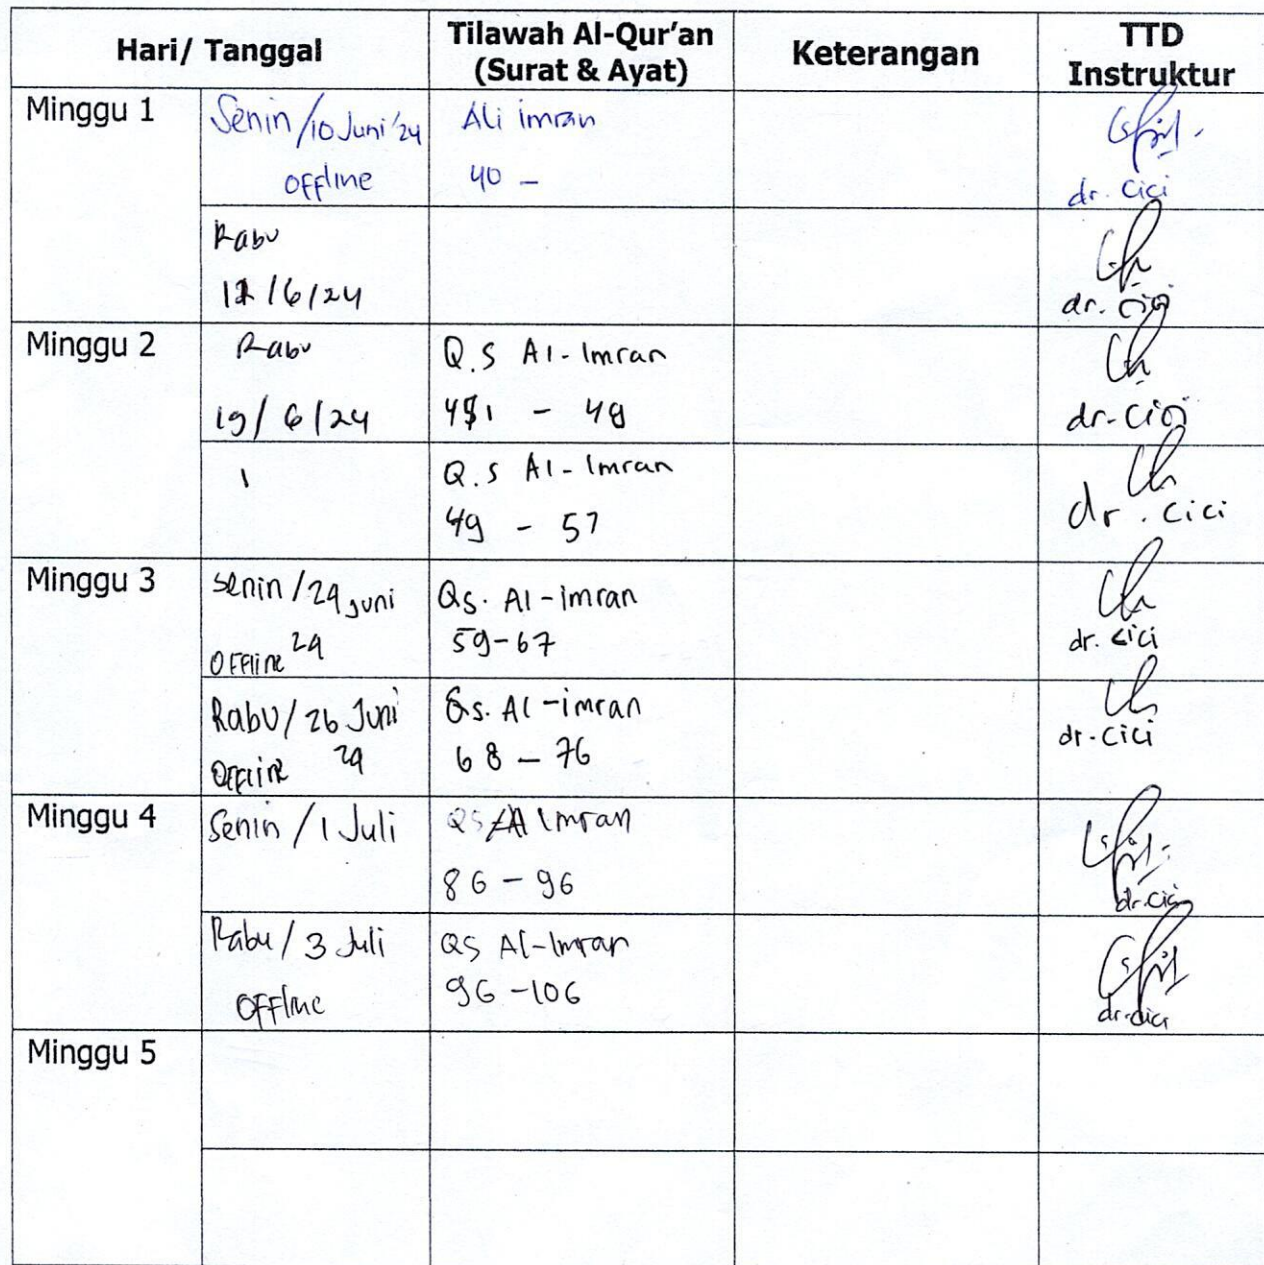 Hari/ Tanggal
Tilawah Al-Qur'an
(Surat & Ayat)
Keterangan
TTD
Instruktur
Minggu 1
Senin /10 Juni'24
Offline
Ali imran
40 -
dr. cici
Rabu
12/6/24
dr. cici
Minggu 2
Rabu
19/6/24
Q.S Al-Imran
41 - 48
dr. cici
Q.S Al-Imran
49 - 57
dr. cici
Minggu 3
Senin /24 Juni
24
Offline
Qs. Al-imran
59-67
dr. cici
Rabu/ 26 Juni
24
Offline
Qs. Al-imran
68 - 76
dr. cici
Minggu 4
Senin / 1 Juli
QS Al Imran
86 - 96
dr. cici
Rabu / 3 Juli
Offline
QS Al-Imran
96 - 106
dr. cici
Minggu 5